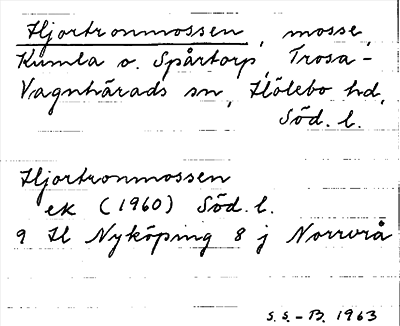 Hjortronmossen, mosse,
Kumla o. Spårtorp, Trosa-
Vagnhärads sn, Hölebo hd,
Söd. l.
Hjortronmossen
ek (1960) Söd. l.
9 H Nyköping 8 j Norrvrå
S.S.-B. 1963